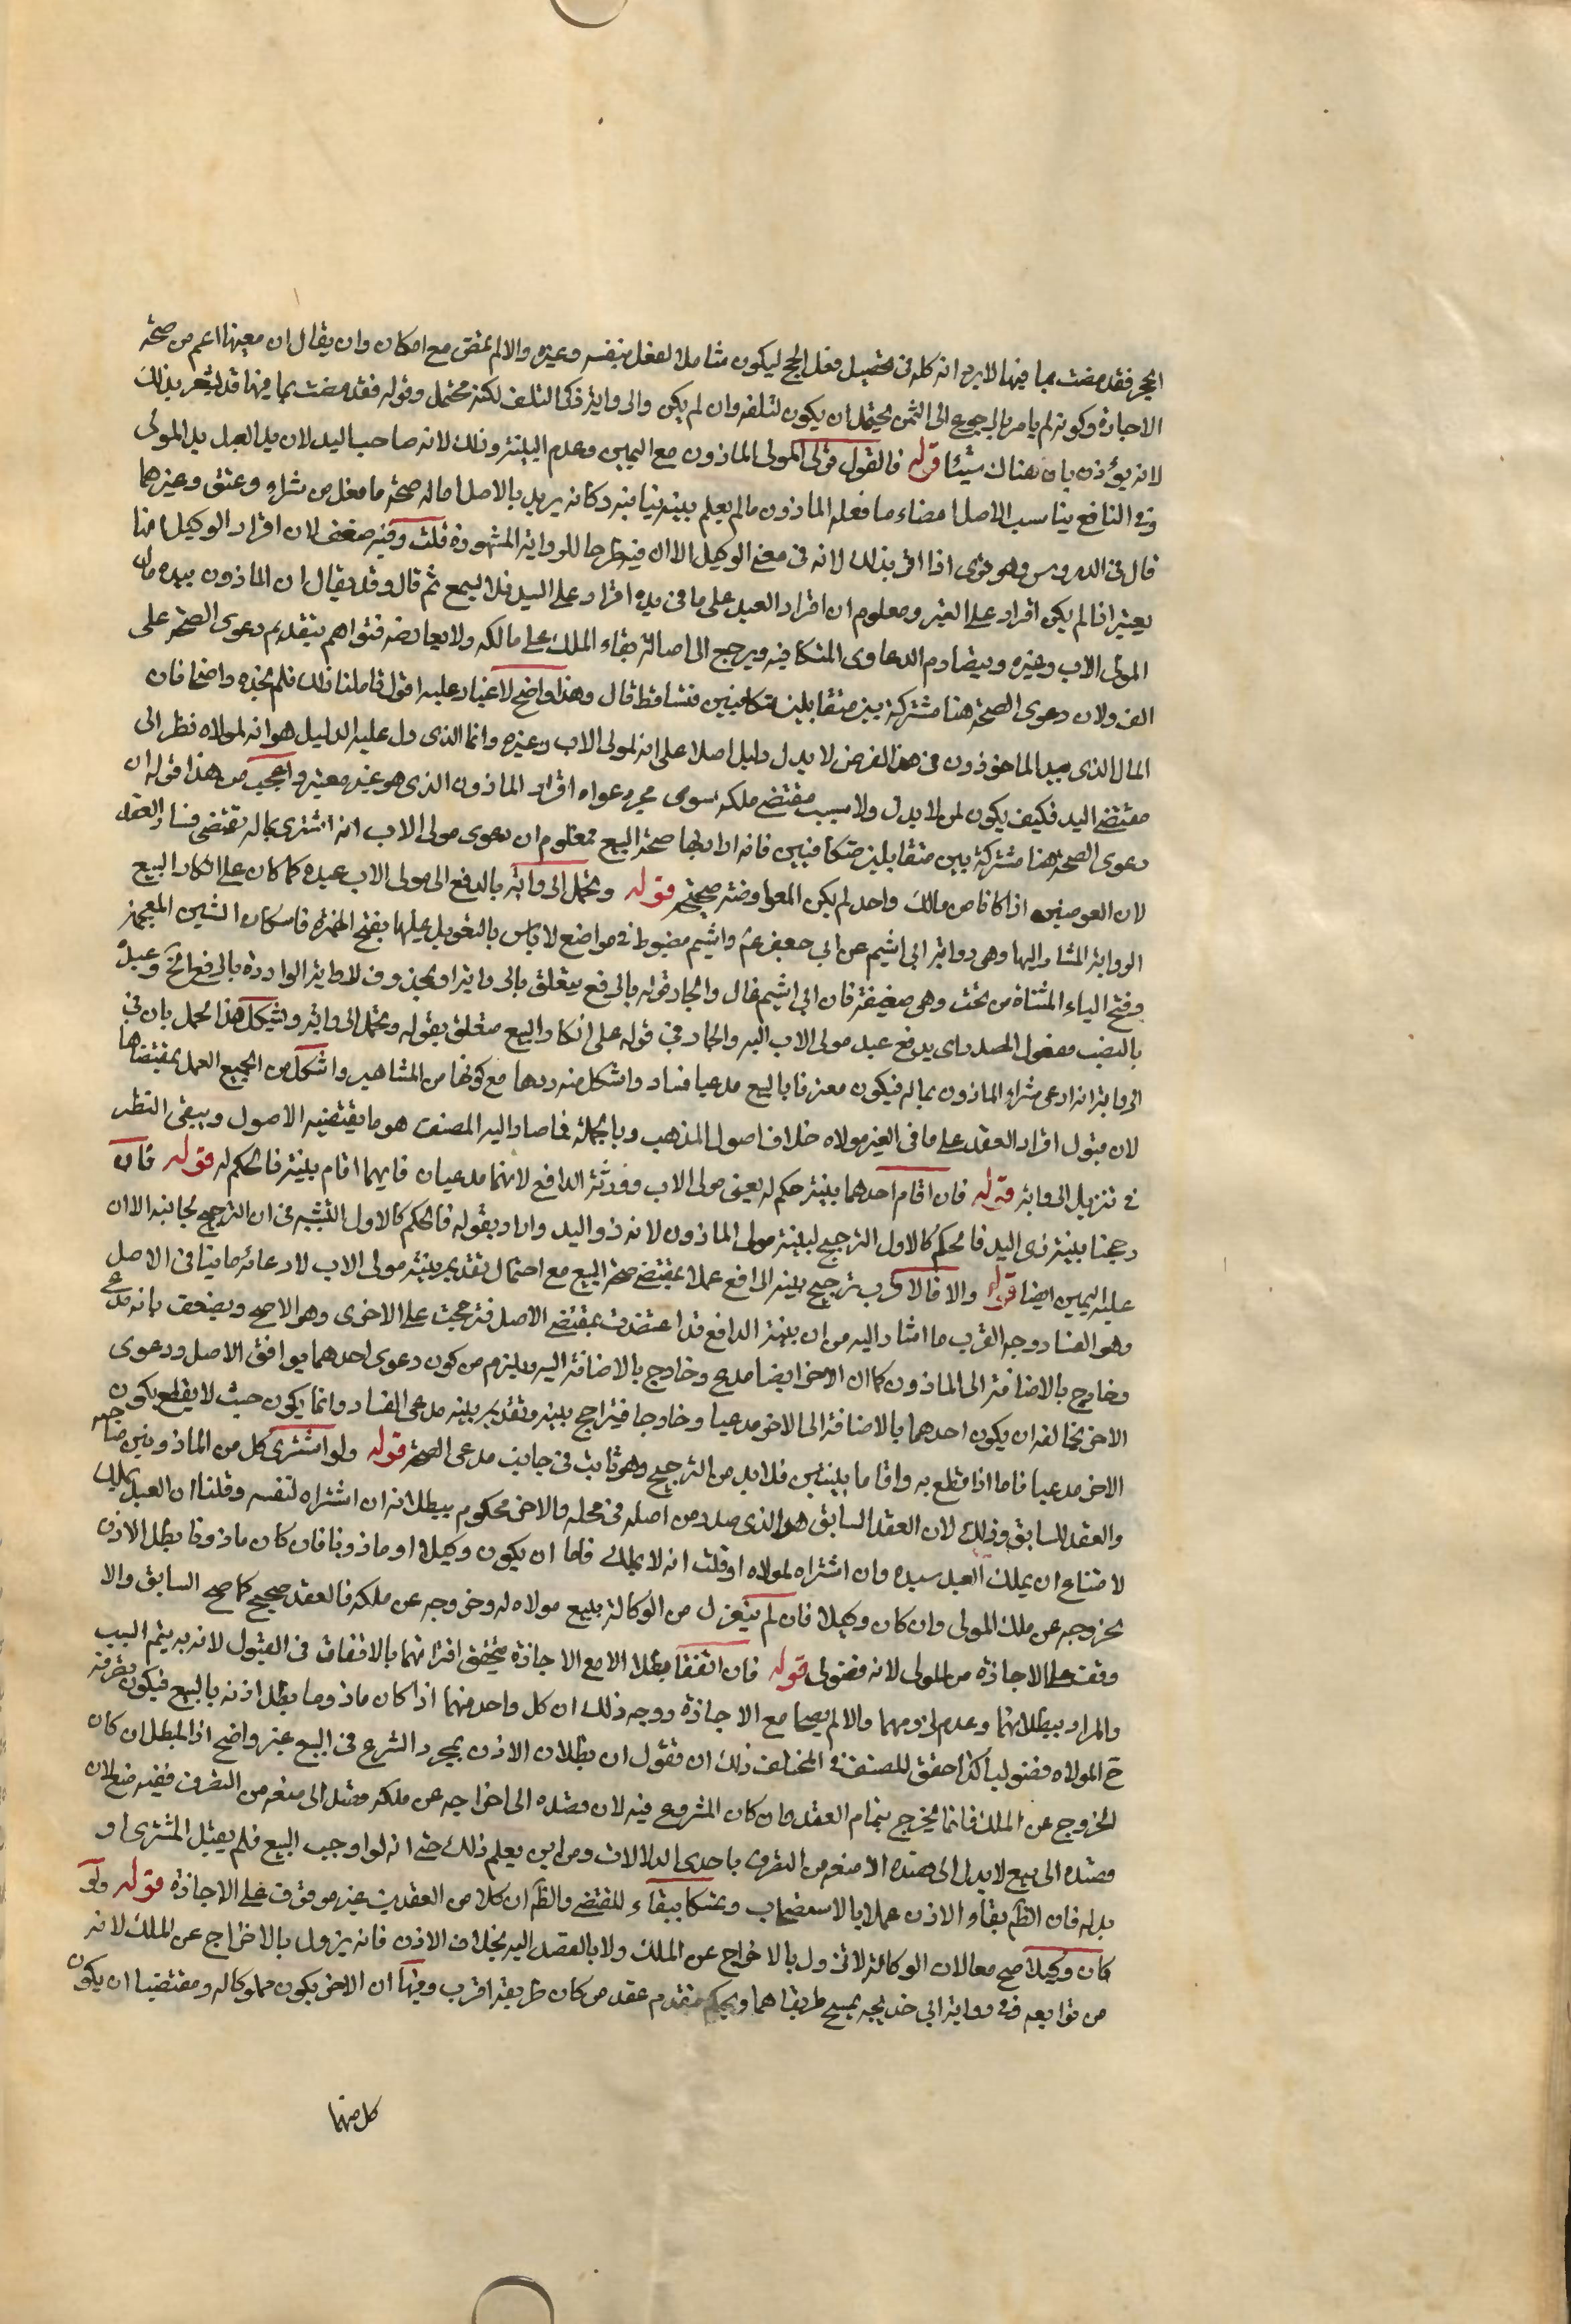 الحج فقد مضت بما فيها لا يرد انه كله في تحصيل فعل الحج ليكون شاملا لفعل بنفسه وغيره والا لم تمض مع امكان وان يقال ان معينها اعم من صحة
الاجارة وكونه لم يامر بالرجوع الى الثمن يحتمل ان يكون لتلفه وان لم يكن والرواية ذكر التلف لكنه محتمل وقوله فقد مضت بما فيها قد يشعر بذلك
لانه يؤذن بان هناك شيئا قوله فالقول قول المولى الماذون مع اليمين وعدم البينة وذلك لانه صاحب اليد لان يد العبد يد المولى
وفي النافع يناسب الاصل امضاء ما فعله الماذون ما لم يعلم بينة تنافيه وكانه يريد بالاصل اصالة صحة ما فعل من شراء وعتق وغيرهما
قال في الدروس وهو قوي اذا اقر بذلك لانه في معنى الوكيل الا ان فيه طرحا للرواية المشهورة قلت وفيه ضعف لان اقرار الوكيل انما
يعتبر اذا لم يكن اقرار على الغير ومعلوم ان اقرار العبد على ما في يده اقرار على السيد فلا يسمع ثم قال وقد يقال ان الماذون بيده مال
المولى الاب وغيره وبتصادم الدعاوى المتكافيه ويرجع الى اصالة بقاء الملك على مالكه ولا يعارضه فتواهم بتقديم دعوى الصحة على
الف ولان دعوى الصحة هنا مشتركة بين متقابلين متكافيين فتساقط قال وهذا واضح لا غبار عليه اقول تاملنا ذلك فلم نجده واضحا فان
المال الذي بيد الماخوذون في هذا الفرض لا يدل دليل اصلا على انه لمولى الاب وغيره وانما الذي دل عليه الدليل هو انه لمولاه نظر الى
مقتضى اليد فكيف يكون لمن لا يد له ولا سبب مقتضى ملكه سوى مجرد دعواه اقرار الماذون الذي هو غير معتبر واعجب من هذا قوله ان
دعوى الصحة هنا مشتركة بين متقابلين متكافيين فانه ان اراد بها صحة البيع فمعلوم ان دعوى مولى الاب انه اشترى بماله تقتضى فساد العقد
لان العوضين اذا كانا من مالك واحد لم يكن المعاوضة صحيحة قوله وتحمل الرواية بالدفع الى مولى الاب عبده كما كان على انكار البيع
الرواية المشار اليها وهى رواية ابي اشيم عن ابي جعفر ع واشيم مضبوط في مواضع لا باس بالتعويل عليها بفتح الهمزة واسكان الشين المعجمة
وفتح الياء المثناة من تحت وهى ضعيفة فان ابي اشيم غال والجار قوله بالرفع يتعلق بالرواية او بمحذوف لا والرواية الواردة بالرفع الخ وعبده
بالنصب مفعول المصدر اي يدفع عبد مولى الاب اليه والجار في قوله على انكار البيع متعلق بقوله وتحمل الرواية واشكل هذا الحمل بان في
الرواية انه ادعى شراء الماذون بماله فيكون معترفا بالبيع مدعيا فساد واشكل منه ردها مع كونها من المشاهير واشكل من الجميع العمل بمقتضاها
لان قبول اقرار العبد على ما في الغير مولاه خلاف اصول المذهب وبالجملة فما صار اليه المصنف هو ما يقتضيه الاصول ويبقى النظر
في تنزيل الرواية قوله فان اقام احدهما بينة حكم له يعني مولى الاب وورثة الدافع لانهما مدعيان فايهما اقام بينة فالحكم له قوله فان
رجحنا بينة ذي اليد فالحكم كالاول الترجيح لبينة مولى الماذون لانه ذو اليد واراد بقوله فالحكم كالاول التشبيه في ان الترجيح لجانبه الا ان
عليه اليمين ايضا قوله والا فالاقرب ترجيح بينه الدافع عملا بمقتضى صحة البيع مع احتمال تقديم بينة مولى الاب لادعائه ما ينافى الاصل
وهو الفساد وجه القرب ما اشار اليه من ان بينة الدافع قد اعتضدت بمقتضى الاصل فترجحت على الاخرى وهو الاصح ويضعف بانه مدع
وخارج بالاضافة الى الماذون كما ان الاخر ايضا مدع وخارج بالاضافة اليه ويلزم من كون دعوى احدهما يوافق الاصل ودعوى
الاخر يخالفه ان يكون احدهما بالاضافة الى الاخر مدعيا وخارجا فيترجح بينه وتقديم بينه مدعى الفساد وانما يكون حيث لا يقطع بكون
الاخر مدعيا فاما اذا قطع به واقاما بينتين فلا بد من الترجيح وهو ثابت في جانب مدعى الصحة قوله ولو اشترى كل من الماذونين صاحبه
والعقد للسابق وذلك لان العقد السابق هو الذي صدر من اصله في محله والاخر محكوم ببطلانه ان اشتراه لنفسه وقلنا ان العبد يملك
لامتناع ان يملك العبد سيده وان اشتراه لمولاه او قلت انه لا يملك فاما ان يكون وكيلا او ماذونا فان كان ماذونا بطل الاذن
بخروجه عن ملك المولى وان كان وكيلا فان لم ينعزل من الوكالة ببيع مولاه له وخروجه عن ملكه فالعقد صحيح كما صح السابق والا
وقف على الاجازة من المولى لانه فضولى قوله فان اتفقا بطلا الا مع الاجازة يتحقق اقترانهما بالاتفاق في القبول لانه به يتم السبب
والمراد ببطلانهما وعدم لزومهما والا لم يصحا مع الاجازة ووجه ذلك ان كل واحد منهما اذا كان ماذونا بطل اذنه بالبيع فيكون تصرفه
ح المولاه فضوليا كذا حقق للمصنف في المختلف ذلك ان نقول ان بطلان الاذن بمجرد الشرع في البيع غير واضح اذ المبطل ان كان
الخروج عن الملك فانما يخرج بتمام العقد وان كان المشروع فيه لان قصده الى اخراجه عن ملكه فقد الى منعه من التصرف ففيه منع لان
قصده الى بيع لا يدل الى قصده الا منعه من التصرف باحدى الدلالات ومن اين يعلم ذلك حتى انه لو اوجب البيع فلم يقبل المشترى او
بدا له فان الظم بقاء الاذن عملا بالاستصحاب وتمسكا ببقاء المقتضى والظم ان كلا من العقدين غير موقوف على الاجازة قوله ولو
كان وكيلا صح معا لان الوكالة لا تزول بالاخراج عن الملك ولا بالقصد اليه بخلاف الاذن فانه يزول بالاخراج عن الملك لانه
من توابعه وفي رواية ابي خديجه يمسح طريقاهما ويحكم بتقدم عقد من كان طريقه اقرب وفيها ان الاخر يكون مملوكا له ومقتضيا ان يكون
كل منهما